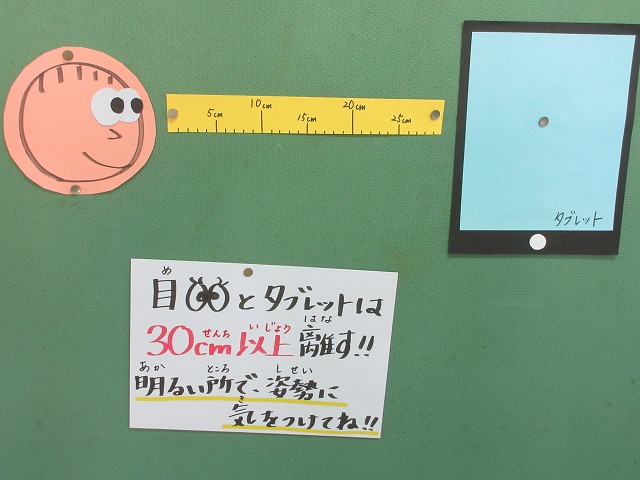 5cm 10cm 15cm 20cm 25cm
タブレット
目とタブレットは
30cm以上離す!!
明るい所で、姿勢に
気をつけてね!!
め
せんち いじょう はな
あか ところ しせい
き